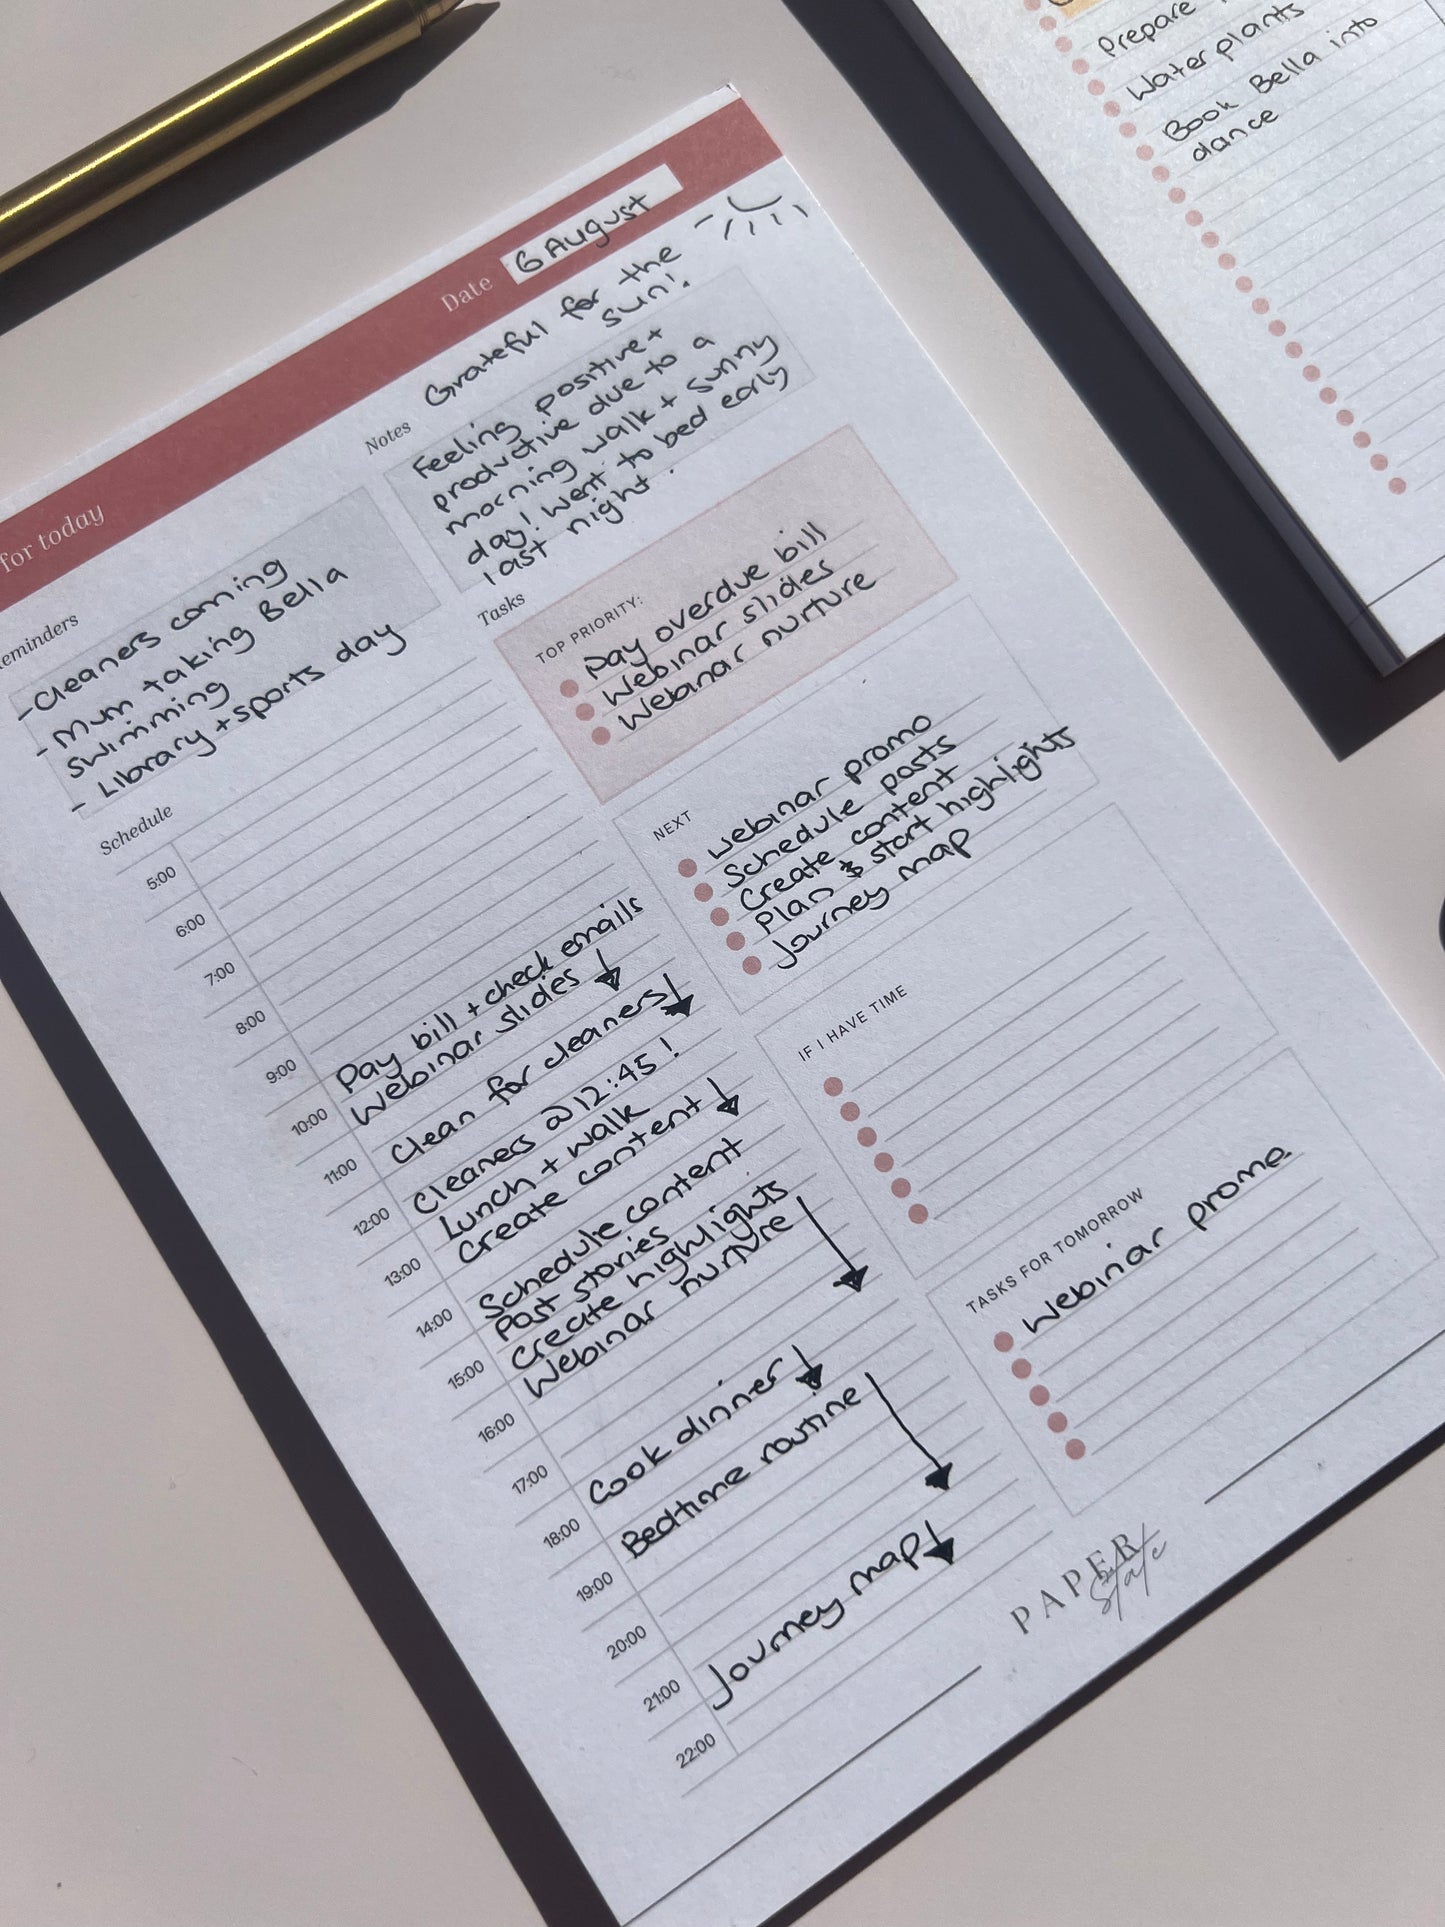 for today
Date 6 August
Reminders
- Cleaners coming
- Mum taking Bella
swimming
- Library + sports day
Notes
Grateful for the
sun!
Feeling positive +
productive due to a
morning walk + sunny
day! Went to bed early
last night.
Schedule
5:00
6:00
7:00
8:00
9:00
Pay bill + check emails
10:00
Webinar slides
Clean for cleaners
11:00
Cleaners @ 12:45!
12:00
Lunch + walk
Create content
13:00
Schedule content
14:00
Post stories
Create highlights
15:00
Webinar nurture
16:00
17:00
Cook dinner
18:00
Bedtime routine
19:00
20:00
21:00
Journey map
22:00
Tasks
TOP PRIORITY:
Pay overdue bill
Webinar slides
Webinar nurture
NEXT
Webinar promo
Schedule posts
Create content
Plan & start highlights
Journey map
IF I HAVE TIME
TASKS FOR TOMORROW
Webinar promo
PAPER
State
Prepare
Water plants
Book Bella into
dance